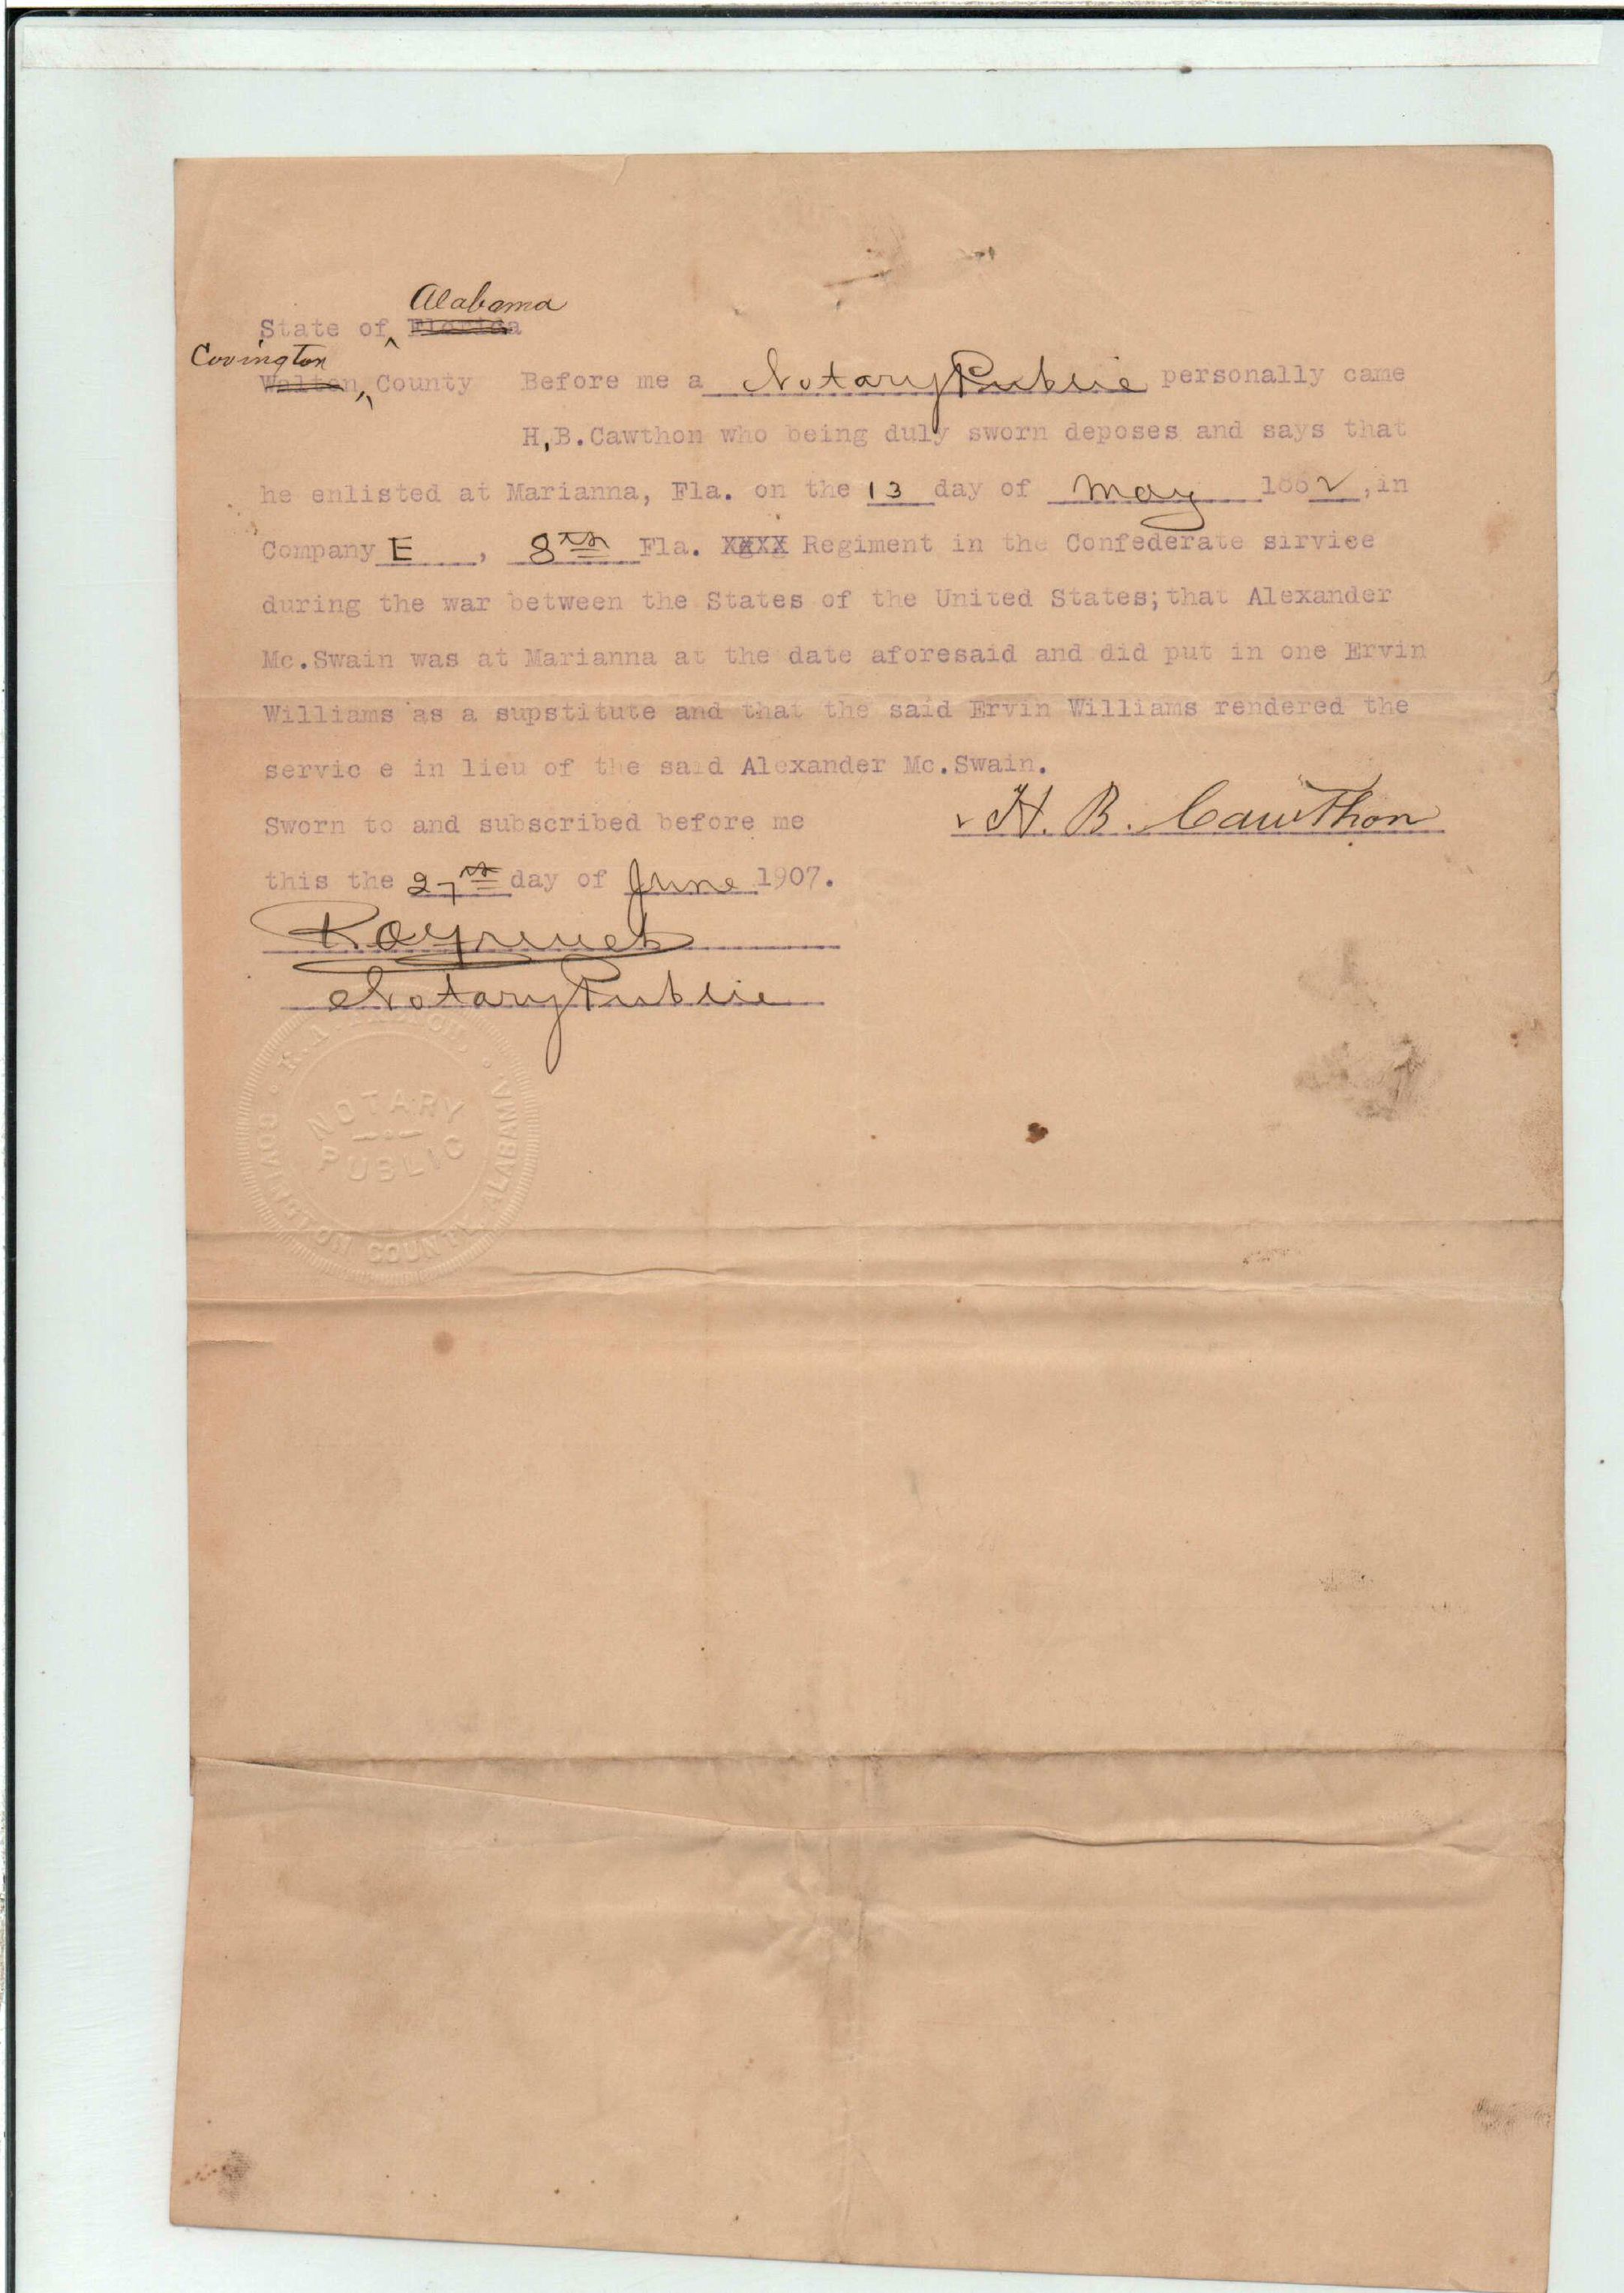 Alabama
State of ^ Florida
Covington
Walton, ^ County Before me a Notary Public personally came
H,B.Cawthon who being duly sworn deposes and says that
he enlisted at Marianna, Fla. on the 13 day of May 1862, in
Company E , 8th Fla. XXXX Regiment in the Confederate sirvice
during the war between the States of the United States; that Alexander
Mc.Swain was at Marianna at the date aforesaid and did put in one Ervin
Williams as a supstitute and that the said Ervin Williams rendered the
servic e in lieu of the said Alexander Mc.Swain.
Sworn to and subscribed before me
H. B. Cawthon
this the 27th day of June 1907.
Notary Public
NOTARY
PUBLIC
COVINGTON COUNTY, ALABAMA